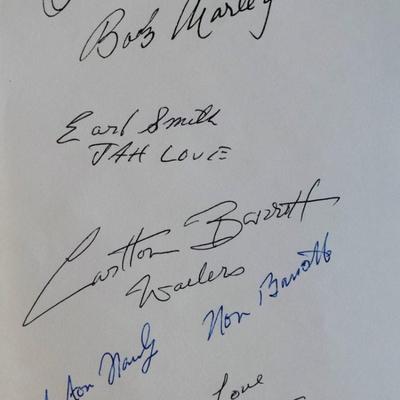 Bob Marley
Earl Smith
JAH LOVE
Carlton Barrett
Wailers
Barrett
Love